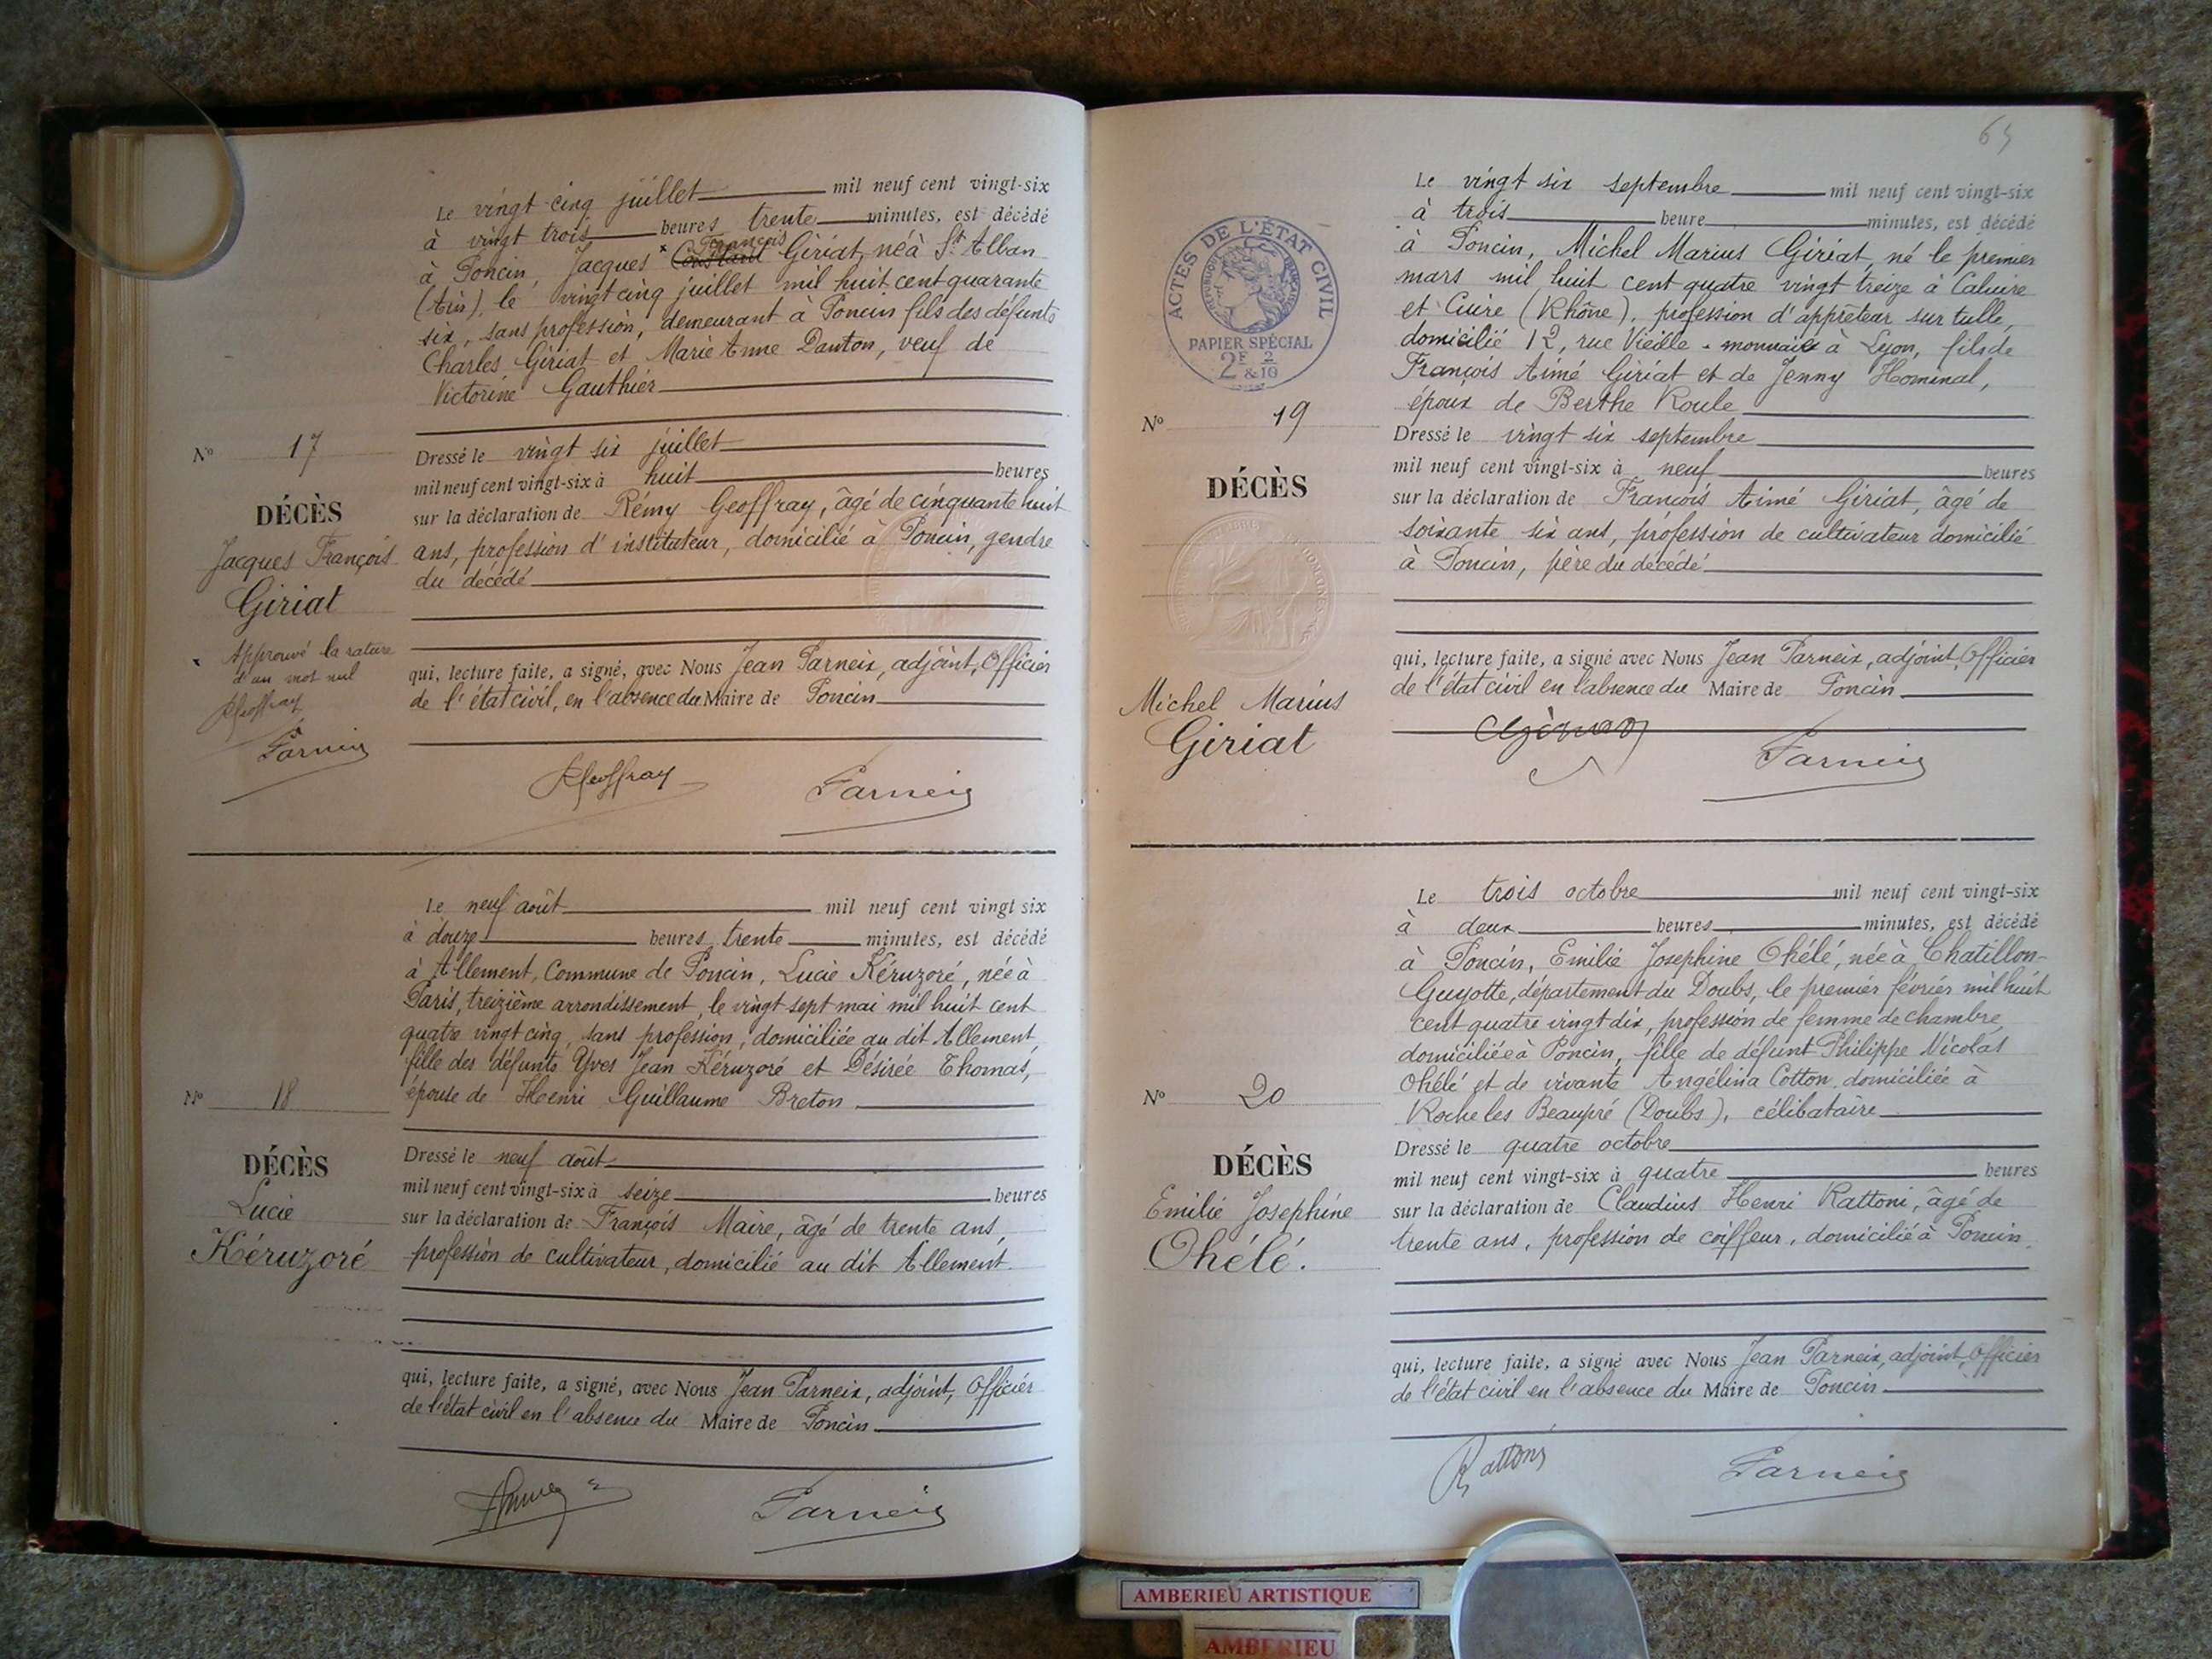 Le vingt cinq juillet mil neuf cent vingt-six
à vingt trois heures trente minutes, est décédé
à Poncin, Jacques × Constant François Giriat, né à St Alban
(Ain), le vingt cinq juillet mil huit cent quarante
six, sans profession, demeurant à Poncin fils des défunts
Charles Giriat et Marie Anne Danton, veuf de
Victorine Gauthier
No 17
DÉCÈS
Jacques François
Giriat
Approuvé la rature
d'un mot nul
RGeoffray
Parneix
Dressé le vingt six juillet
mil neuf cent vingt-six à huit heures
sur la déclaration de Rémy Geoffray, âgé de cinquante huit
ans, profession d'instituteur, domicilié à Poncin, gendre
du décédé
qui, lecture faite, a signé, avec Nous Jean Parneix, adjoint, Officier
de l'état civil, en l'absence du Maire de Poncin
RGeoffray Parneix
Le neuf août mil neuf cent vingt six
à douze heures trente minutes, est décédé
à Allement, Commune de Poncin, Lucie Kéruzoré, née à
Paris, treizième arrondissement, le vingt sept mai mil huit cent
quatre vingt cinq, sans profession, domiciliée au dit Allement,
fille des défunts Yves Jean Kéruzoré et Désirée Thomas,
épouse de Henri Guillaume Breton
No 18
DÉCÈS
Lucie
Kéruzoré
Dressé le neuf août
mil neuf cent vingt-six à seize heures
sur la déclaration de François Maire, âgé de trente ans,
profession de cultivateur, domicilié au dit Allement.
qui, lecture faite, a signé, avec Nous Jean Parneix, adjoint, Officier
de l'état civil en l'absence du Maire de Poncin
Parneix
ACTES DE L'ÉTAT CIVIL
RÉPUBLIQUE FRANÇAISE
PAPIER SPÉCIAL
2F 2
&10
Le vingt six septembre mil neuf cent vingt-six
à trois heure minutes, est décédé
à Poncin, Michel Marius Giriat, né le premier
mars mil huit cent quatre vingt treize à Caluire
et Cuire (Rhône), profession d'apprêteur sur tulle,
domicilié 12, rue Vieille - monnaie à Lyon, fils de
François Aimé Giriat et de Jenny Hominal,
époux de Berthe Roule
No 19
DÉCÈS
Michel Marius
Giriat
Dressé le vingt six septembre
mil neuf cent vingt-six à neuf heures
sur la déclaration de François Aimé Giriat, âgé de
soixante six ans, profession de cultivateur domicilié
à Poncin, père du décédé
qui, lecture faite, a signé avec Nous Jean Parneix, adjoint, Officier
de l'état civil en l'absence du Maire de Poncin
Parneix
Le trois octobre mil neuf cent vingt-six
à deux heures minutes, est décédé
à Poncin, Emilie Josephine Ohélé, née à Chatillon-
Guyotte, département du Doubs, le premier février mil huit
cent quatre vingt dix, profession de femme de chambre,
domiciliée à Poncin, fille de défunt Philippe Nicolas
Ohélé et de vivante Angélina Cotton domiciliée à
Roche les Beaupré (Doubs), célibataire
No 20
DÉCÈS
Emilie Josephine
Ohélé.
Dressé le quatre octobre
mil neuf cent vingt-six à quatre heures
sur la déclaration de Claudius Henri Rattoni, âgé de
trente ans, profession de coiffeur, domicilié à Poncin.
qui, lecture faite, a signé avec Nous Jean Parneix, adjoint, Officier
de l'état civil en l'absence du Maire de Poncin
Rattoni Parneix
AMBERIEU ARTISTIQUE
AMBERIEU